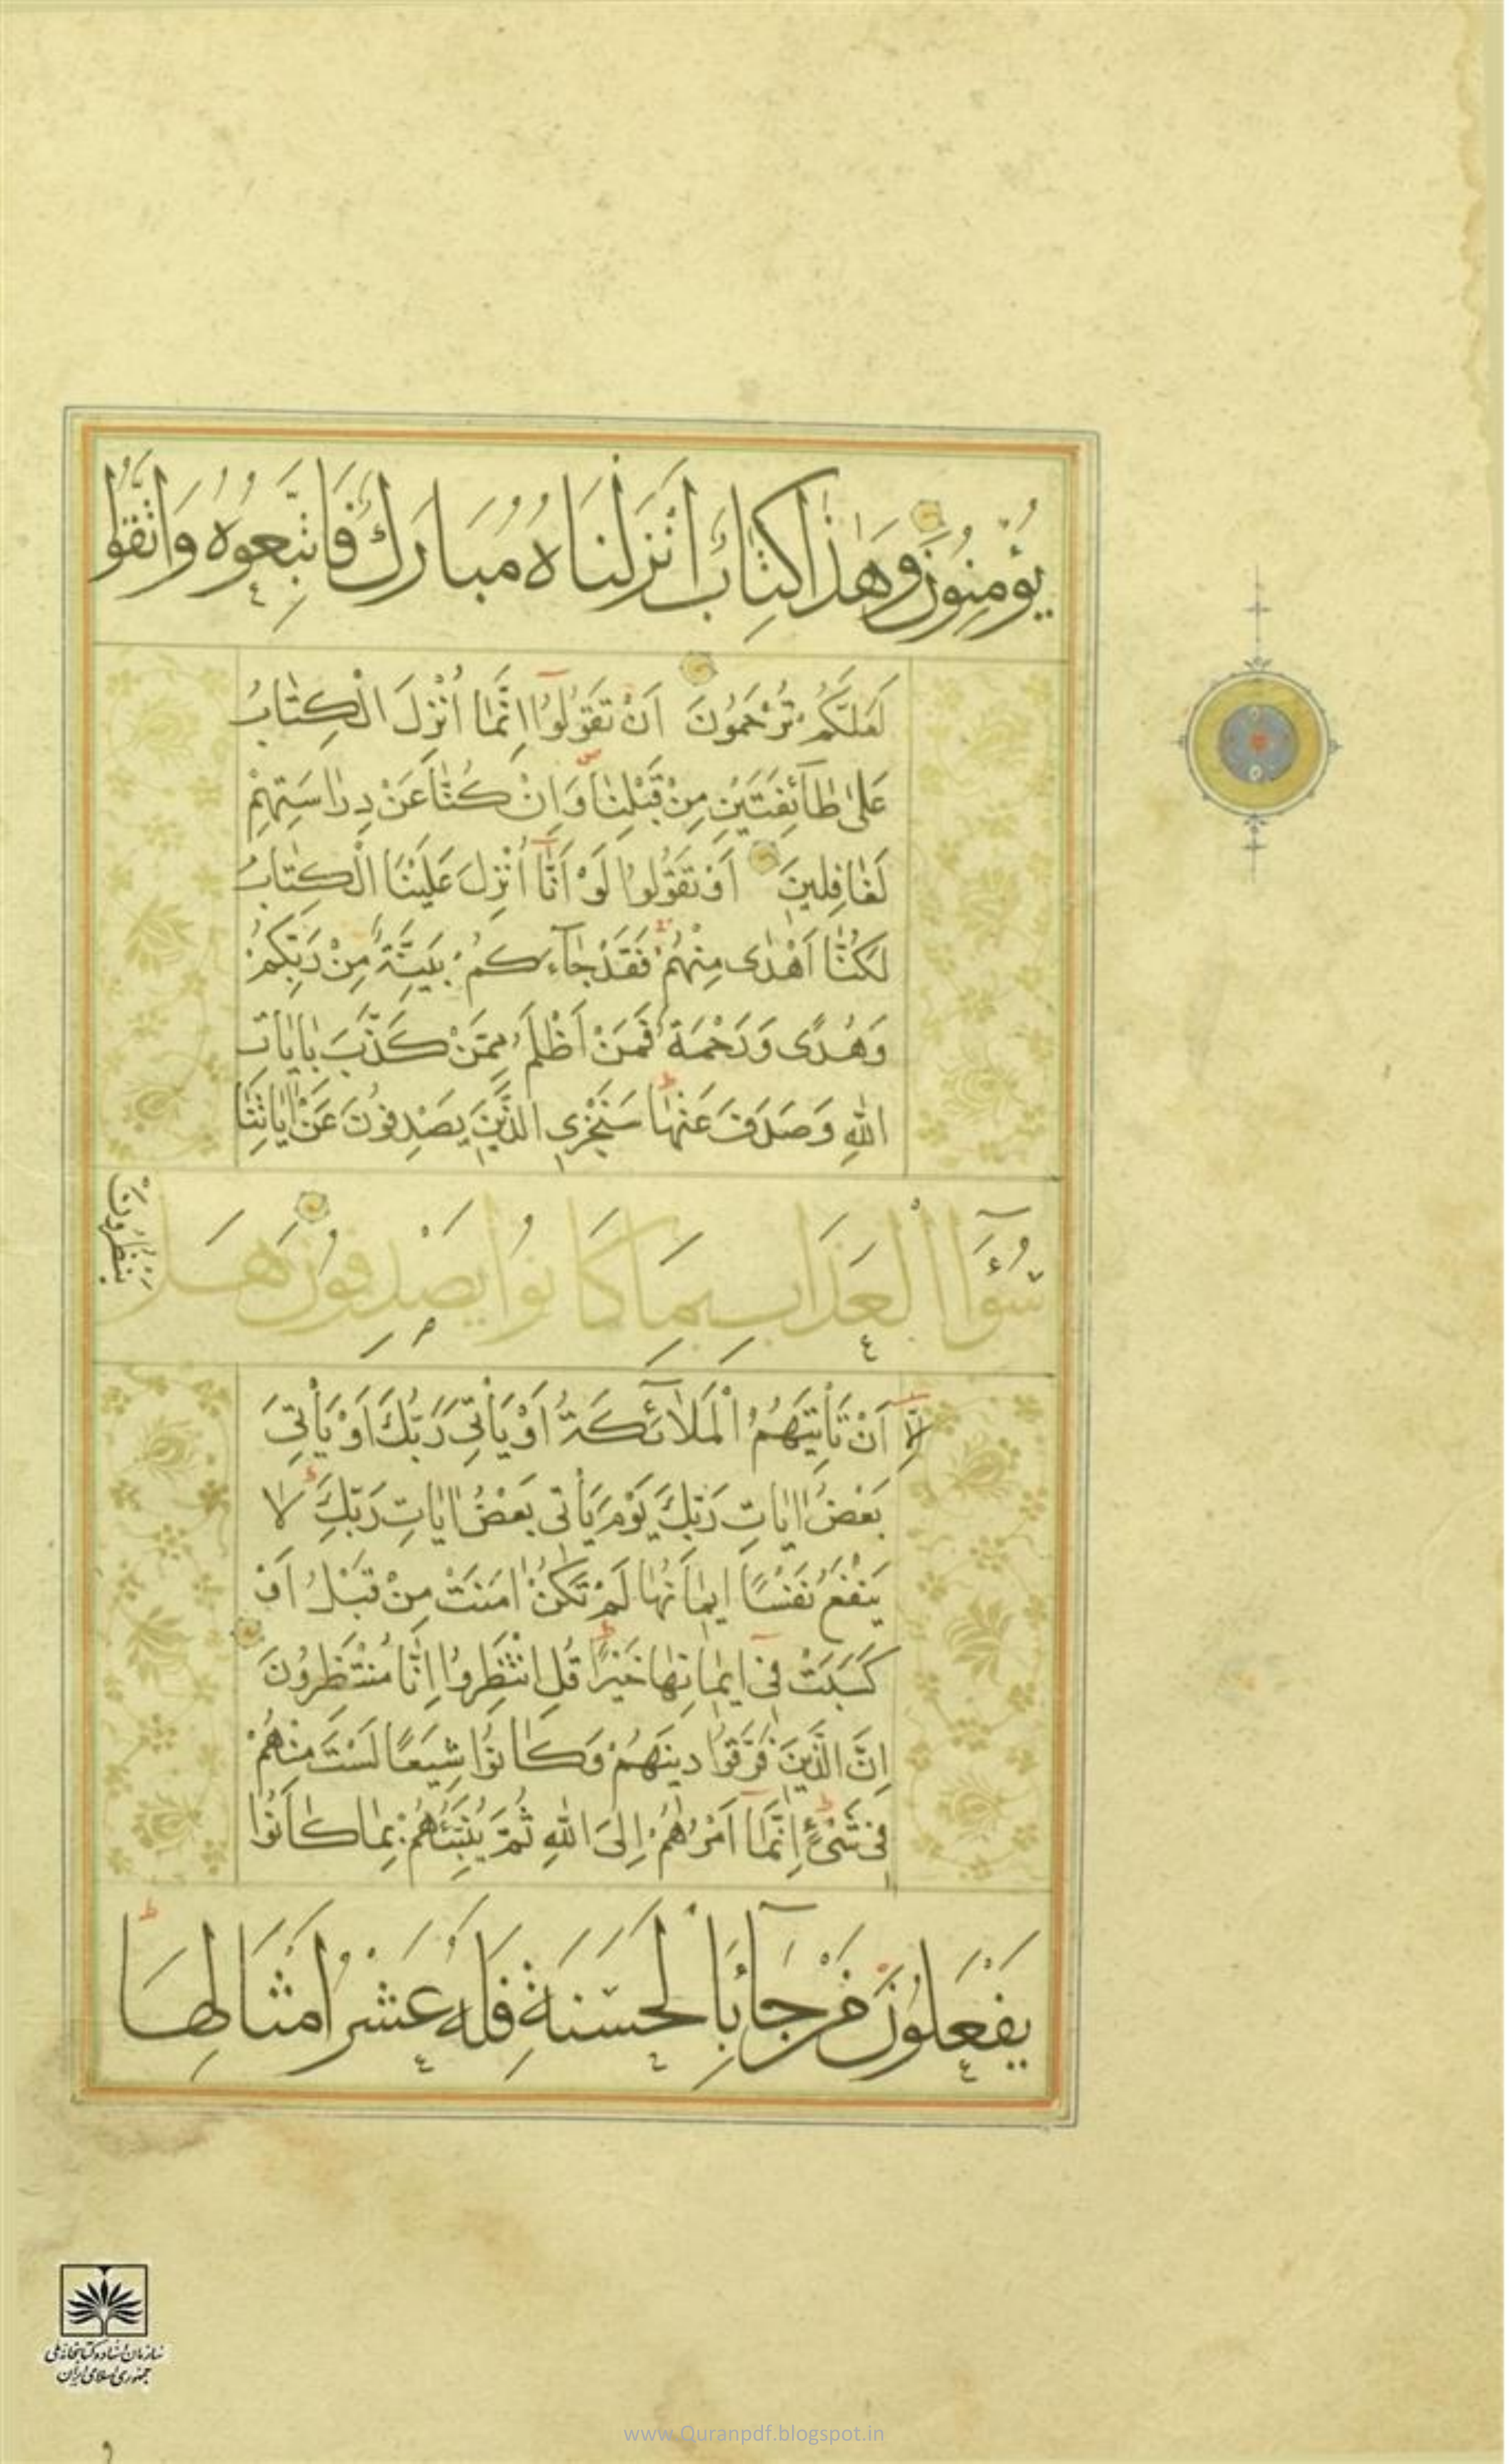 يُؤْمِنُونَ وَهٰذَا كِتَابٌ اَنْزَلْنَاهُ مُبَارَكٌ فَاتَّبِعُوهُ وَاتَّقُوا
لَعَلَّكُمْ تُرْحَمُونَ اَنْ تَقُولُوا اِنَّمَا اُنْزِلَ الْكِتَابُ
عَلٰى طَآئِفَتَيْنِ مِنْ قَبْلِنَا وَاِنْ كُنَّا عَنْ دِرَاسَتِهِمْ
لَغَافِلِينَ اَوْ تَقُولُوا لَوْ اَنَّا اُنْزِلَ عَلَيْنَا الْكِتَابُ
لَكُنَّا اَهْدٰى مِنْهُمْ فَقَدْ جَآءَكُمْ بَيِّنَةٌ مِنْ رَبِّكُمْ
وَهُدًى وَرَحْمَةٌ فَمَنْ اَظْلَمُ مِمَّنْ كَذَّبَ بِاٰيَاتِ
اللّٰهِ وَصَدَفَ عَنْهَا سَنَجْزِي الَّذِينَ يَصْدِفُونَ عَنْ اٰيَاتِنَا
سُوٓءَ الْعَذَابِ بِمَا كَانُوا يَصْدِفُونَ هَلْ
يَنْظُرُونَ
اِلَّا اَنْ تَأْتِيَهُمُ الْمَلَآئِكَةُ اَوْ يَأْتِيَ رَبُّكَ اَوْ يَأْتِيَ
بَعْضُ اٰيَاتِ رَبِّكَ يَوْمَ يَأْتِي بَعْضُ اٰيَاتِ رَبِّكَ لَا
يَنْفَعُ نَفْسًا اِيمَانُهَا لَمْ تَكُنْ اٰمَنَتْ مِنْ قَبْلُ اَوْ
كَسَبَتْ فِي اِيمَانِهَا خَيْرًا قُلِ انْتَظِرُوا اِنَّا مُنْتَظِرُونَ
اِنَّ الَّذِينَ فَرَّقُوا دِينَهُمْ وَكَانُوا شِيَعًا لَسْتَ مِنْهُمْ
فِي شَيْءٍ اِنَّمَا اَمْرُهُمْ اِلَى اللّٰهِ ثُمَّ يُنَبِّئُهُمْ بِمَا كَانُوا
يَفْعَلُونَ مَنْ جَآءَ بِالْحَسَنَةِ فَلَهُ عَشْرُ اَمْثَالِهَا
سازمان اسناد و کتابخانه ملی
جمهوری اسلامی ایران
www.Quranpdf.blogspot.in